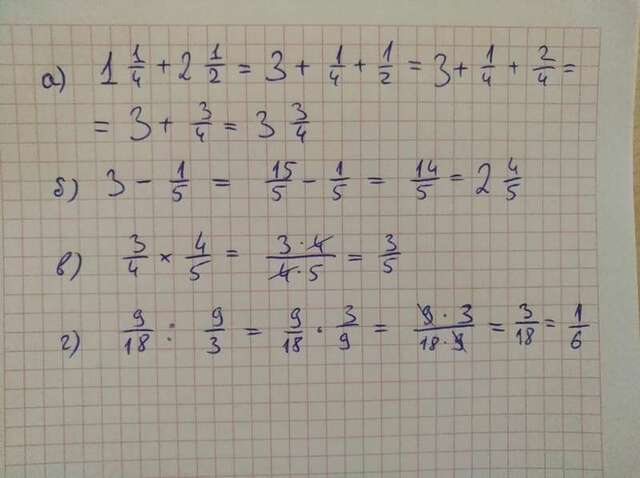 а) 1 1/4 + 2 1/2 = 3 + 1/4 + 1/2 = 3 + 1/4 + 2/4 =
= 3 + 3/4 = 3 3/4
б) 3 - 1/5 = 15/5 - 1/5 = 14/5 = 2 4/5
в) 3/4 × 4/5 = 3·4/4·5 = 3/5
г) 9/18 : 9/3 = 9/18 · 3/9 = 9·3/18·9 = 3/18 = 1/6